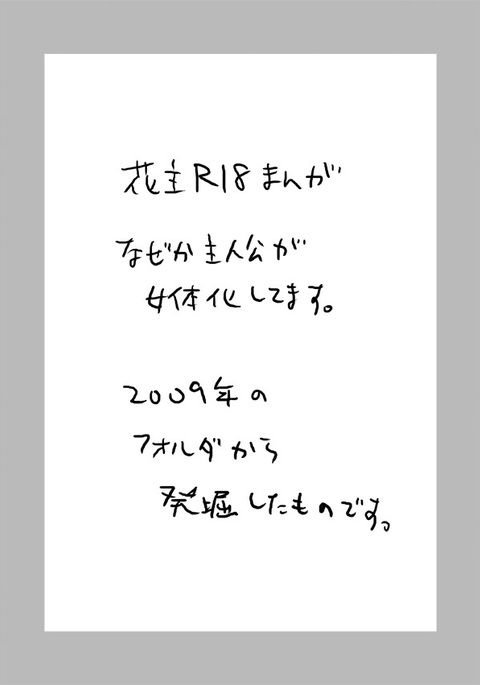 花主R18まんが
なぜか主人公が
女体化してます。
2009年の
フォルダから
発掘したものです。